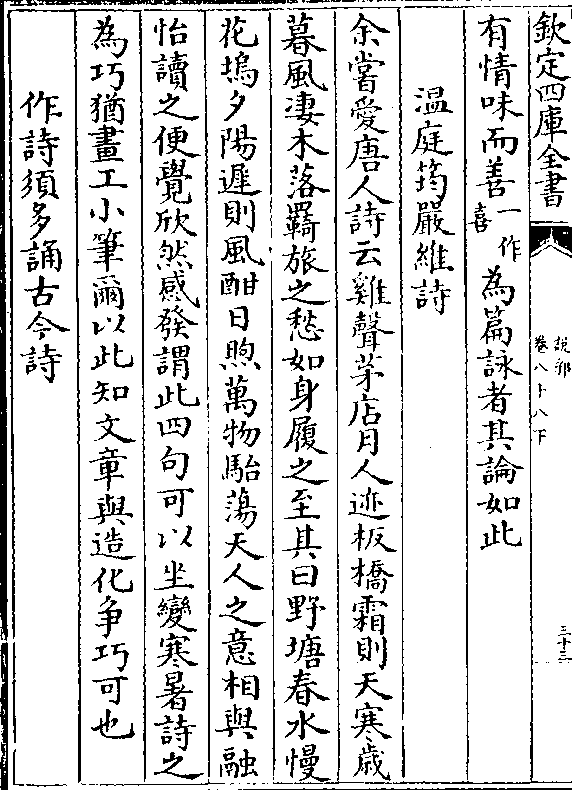 欽定四庫全書
說郛
卷八十八下
三十三
有情味而善一作喜為篇詠者其論如此
溫庭筠嚴維詩
余嘗愛唐人詩云雞聲茅店月人迹板橋霜則天寒歲
暮風凄木落羇旅之愁如身履之至其曰野塘春水慢
花塢夕陽遲則風酣日煦萬物駘蕩天人之意相與融
怡讀之便覺欣然感發謂此四句可以坐變寒暑詩之
為巧猶畫工小筆爾以此知文章與造化爭巧可也
作詩須多誦古今詩